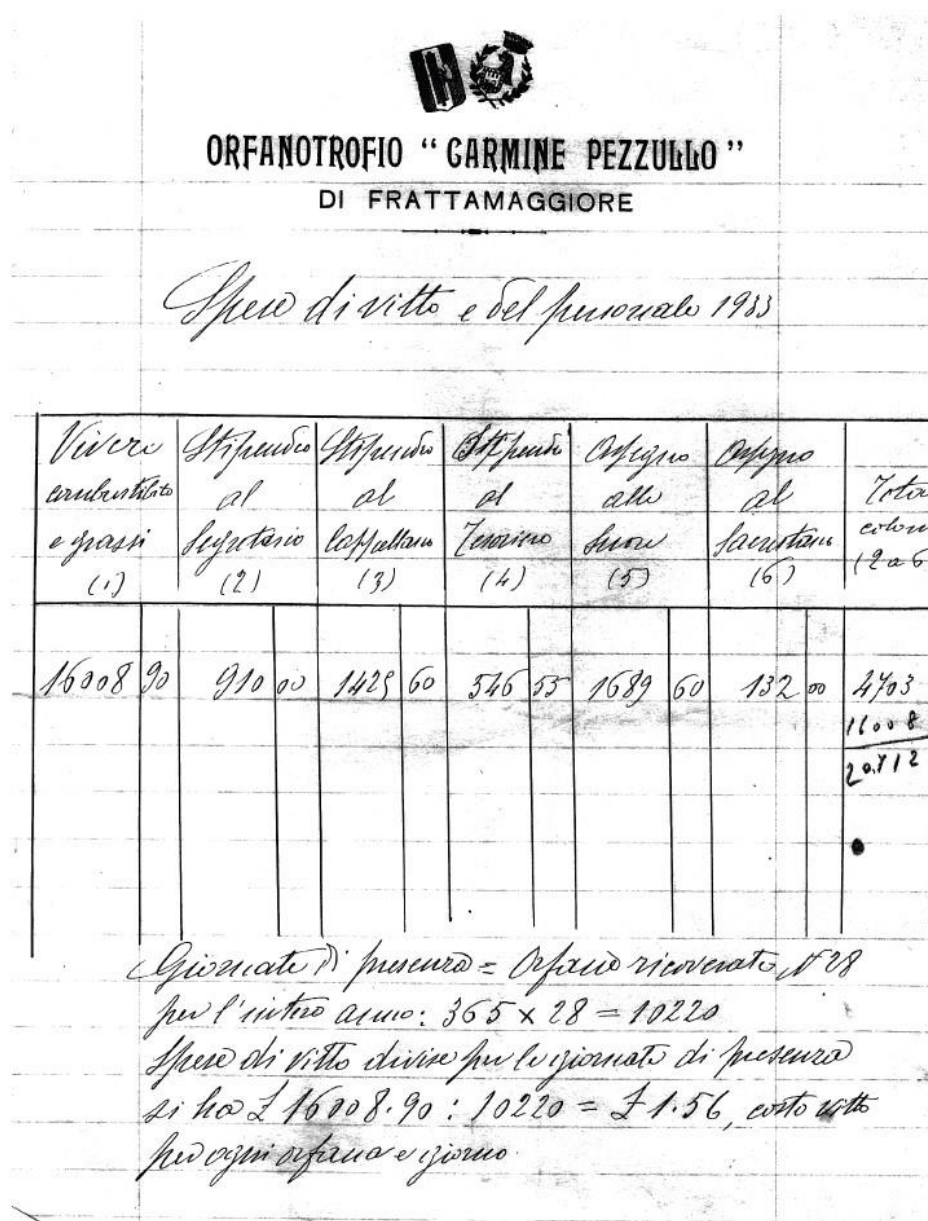 ORFANOTROFIO “CARMINE PEZZULLO”
DI FRATTAMAGGIORE
Spese di vitto e del personale 1933
Viveri combustibile e grassi (1)
Stipendio al Segretario (2)
Stipendio al Cappellano (3)
Stipendio al Tesoriere (4)
Assegno alle Suore (5)
Assegno al Sacrestano (6)
(2 a 6
16008 90 910 00 1425 60 546 55 1689 60 132 00 4703
16008
20.712
Giornate di presenza = Orfane ricoverate N 28
per l'intero anno: 365 x 28 = 10220
Spese di vitto divise per le giornate di presenza
si ha £ 16008.90 : 10220 = £ 1.56, costo vitto
per ogni orfana e giorno.